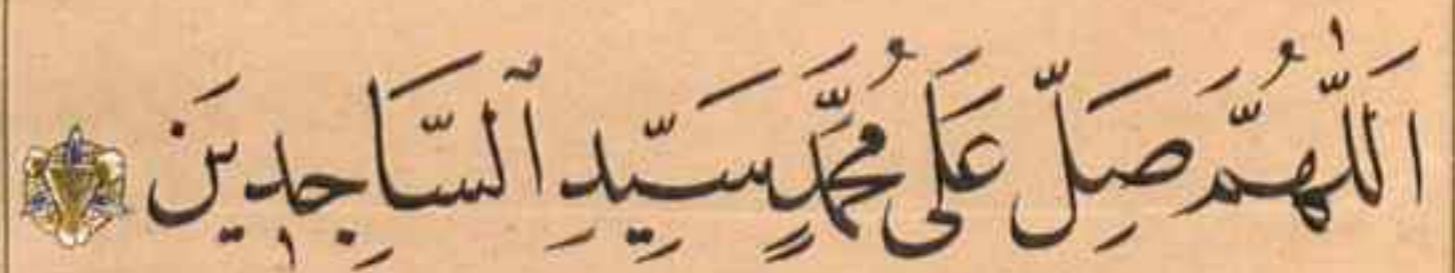 اَللّٰهُمَّ صَلِّ عَلَى مُحَمَّدٍ سَيِّدِ ٱلسَّاجِدِينَ